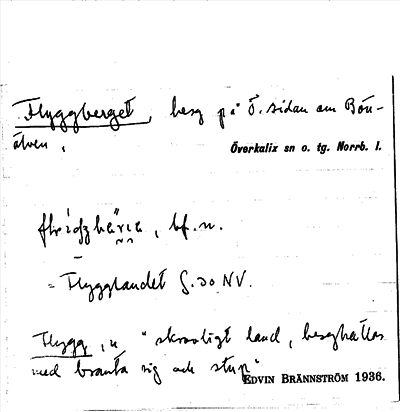 Flyggberget, berg på Ö. sidan om Bön-
älven,
Överkalix sn o. tg. Norrb. l.
bf. n.
= Flygglandet S. 30 NV.
Flygg, n "skrovligt land, berghällar
med branta sig och stup"
EDVIN BRÄNNSTRÖM 1936.